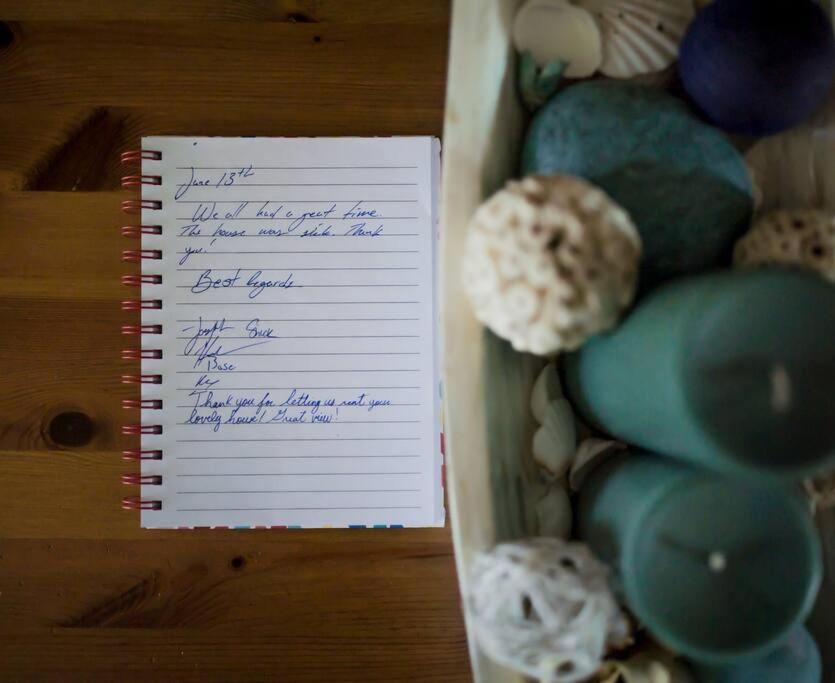 June 13th
We all had a great time.
The house was slick. Thank
you!
Best Regards
Joseph
Thank you for letting us rent your
lovely house! Great view!